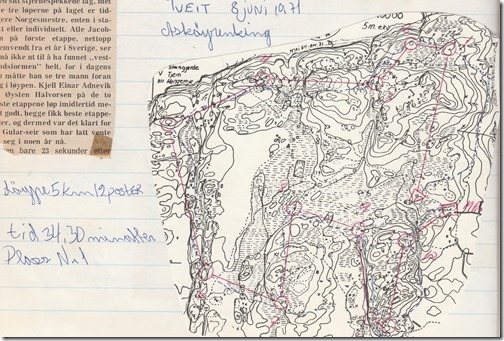 ed sitt stjernespekkede lag, idet
e tre løperne på laget er tid-
gere Norgesmestre, enten i sta-
tt eller individuelt. Alle Jacob-
n på første etappe, nettopp
emvendt fra et år i Sverige, ser
nå ikke ut til å ha funnet „vest-
ndsformen" helt, for i dagens
måtte han se tre mann foran
g i løypen. Kjell Einar Adnevik
Øysten Halvorsen på de to
ste etappene løp imidlertid me-
t godt, begge fikk beste etappe-
der, og dermed var det klart for
Gular-seir som har latt vente
seg i noen år nå.
en bare 23 sekunder etter
TVEIT 8 JUNI 1971
Askøyrenking
Løype 5 km 12 poster
tid 34,30 minutter
Plass Nr 1
5 m.
V Tjem